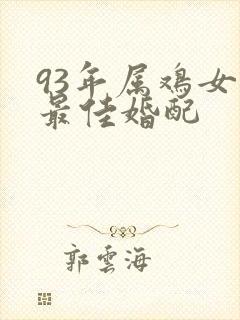 93年属鸡女
最佳婚配
郭雲海